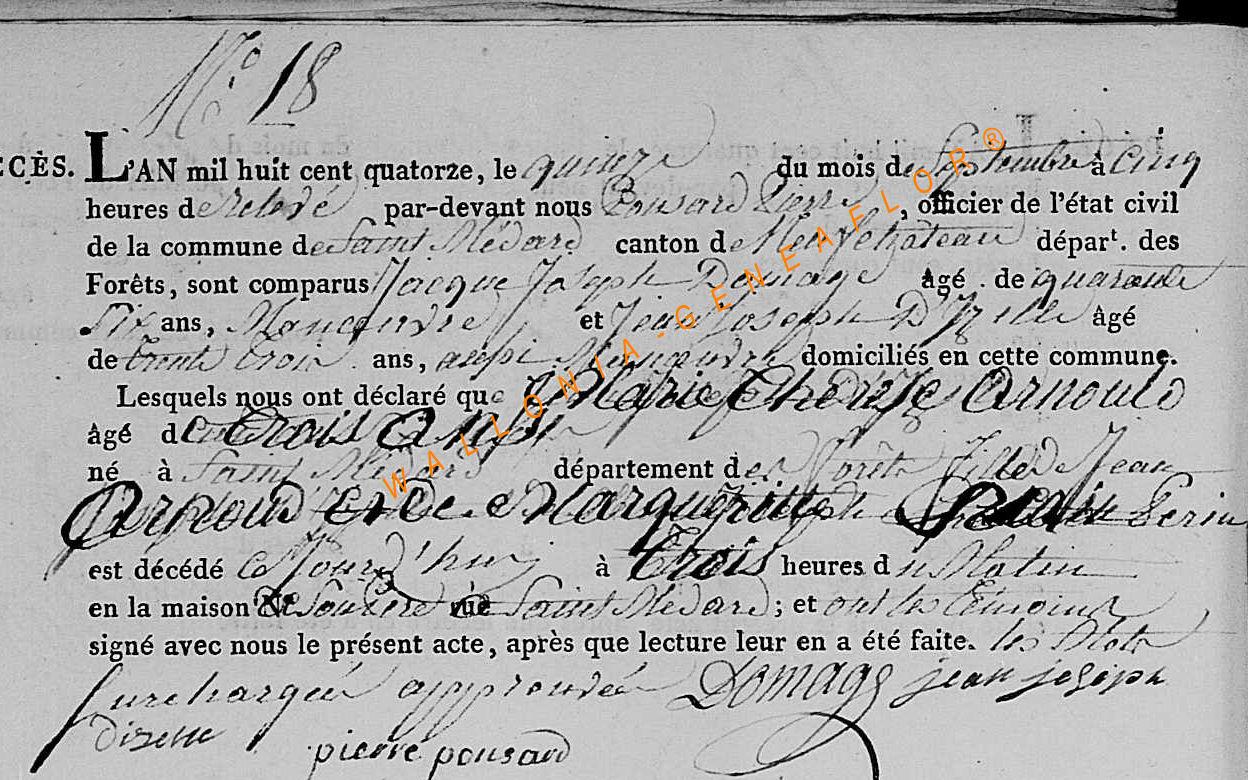 N.º 18
CÈS. L'AN mil huit cent quatorze, le quinze du mois de Septembre à cinq
heures de relevé par-devant nous Pousard Pierre, officier de l'état civil
de la commune de Saint Médard canton de Neufchâteau départ. des
Forêts, sont comparus Jacque Joseph Domage âgé de quarante
Six ans, Manoeuvre et Jean Joseph D'Izelle âgé
de trente trois ans, aussi Manoeuvre domiciliés en cette commune.
Lesquels nous ont déclaré que Marie Therese Arnould
âgé de trois Ans
né à Saint Médard département des Forêts fille de Jean
Arnoud et de Margueritte Perin
est décédé ce Jourd'hui à trois heures du Matin
en la maison de Son Pere rue Saint Médard; et ont les témoins
signé avec nous le présent acte, après que lecture leur en a été faite. les Mots
surchargés approuvés Domage jean joseph
dizelle pierre pousard
WALLONIA-GENEAFLOR®